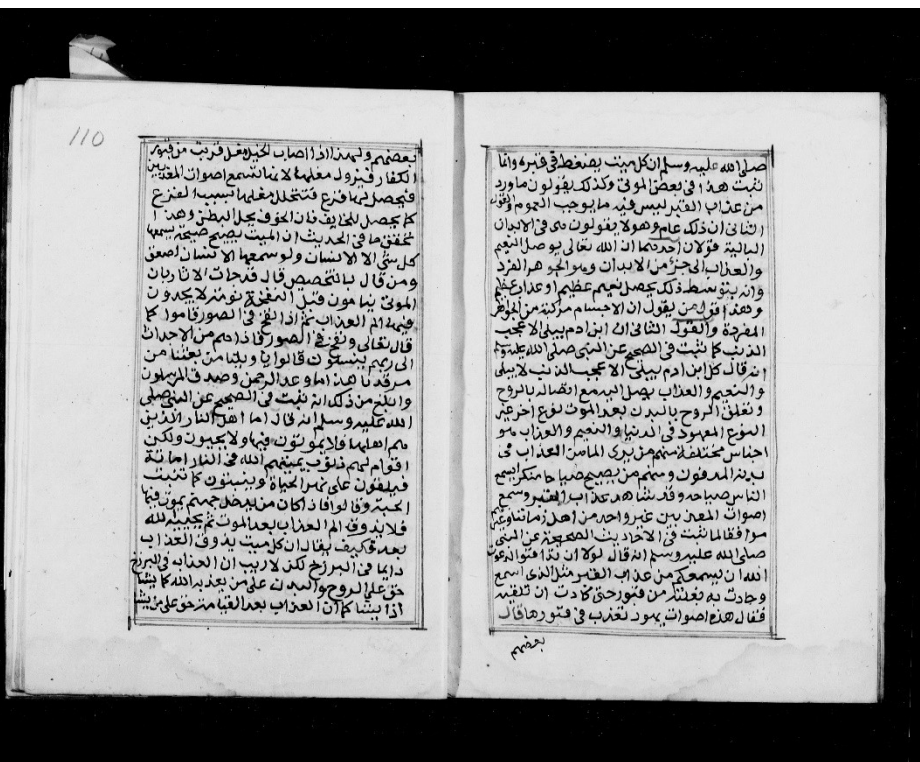 صلى الله عليه وسلم ان كل ميت يضغط في قبره وانما
تثبت هذا في بعض الموتى وكذلك يقولون ما ورد
من عذاب القبر ليس فيه ما يوجب العموم والقول
الثاني ان ذلك عام وهولا يقولون في الابدان
البالية قولان احدهما ان الله تعالى يوصل النعيم
والعذاب الى جزء من الابدان وهو الجوهر الفرد
وانه بتوسط ذلك يحصل نعيم عظيم او عذاب عظيم
وهذا قول من يقول ان الاجسام مركبة من الجواهر
المفردة والقول الثاني ان ابن ادم يبلى الا عجب
الذنب كما ثبت في الصحيح عن النبي صلى الله عليه وسلم
انه قال كل ابن ادم يبلى الا عجب الذنب لا يبلى
والنعيم والعذاب يصل اليه مع اتصاله بالروح
وتعلق الروح بالبدن بعد الموت نوع اخر غير
النوع المعهود في الدنيا والنعيم والعذاب هو
اجناس مختلفة منهم من يرى الما من العذاب في
بدنه المدفون ومنهم من يصيح صياحا منكرا يسمع
الناس صياحه وقد شاهد عذاب القبر وسمع
اصوات المعذبين غير واحد من اهل زماننا وغيرهم
موافقا لما ثبت في الاحاديث الصحيحة عن النبي
صلى الله عليه وسلم انه قال لولا ان تدافنوا لدعوت
الله ان يسمعكم من عذاب القبر مثل الذي اسمع
وحادت به بغلته من قبور حتى كادت ان تلقيه
فقال هذه اصوات يهود تعذب في قبورها قال
بعضهم
110
بعضهم ولهذا اذا اصاب الخيل مغل قربت من قبور
الكفار فيزول مغلها لانها تسمع اصوات المعذبين
فيحصل لها فزع فتتحلل مغلها بسبب الفزع
كما يحصل للخايف فان الخوف يحل البطن وهذا
تحقق ما في الحديث ان الميت يصيح صيحة يسمعها
كل شي الا الانسان ولو سمعها الانسان لصعق
ومن قال بالتخصيص قال قد جات الاثار بان
الموتى ينامون قبل النفخة نومة لا يجدون
فيها الم العذاب ثم اذا نفخ في الصور قاموا كما
قال تعالى ونفخ في الصور فاذا هم من الاجداث
الى ربهم ينسلون قالوا يا ويلنا من بعثنا من
مرقدنا هذا ما وعد الرحمن وصدق المرسلون
وابلغ من ذلك انه ثبت في الصحيح عن النبي صلى
الله عليه وسلم انه قال اما اهل النار الذين
هم اهلها فلا يموتون فيها ولا يحيون ولكن
اقوام لهم ذنوب يميتهم الله في النار اماتة
فيلقون على نهر الحياة وينبتون كما تنبت
الحبة وقالوا فاذا كان من يدخل جهنم يموت فيها
فلا يذوق الم العذاب بعد الموت ثم يحييه الله
بعده فكيف يقال ان كل ميت يذوق العذاب
دايما في البرزخ لكن لا ريب ان العذاب في البرزخ
حق على الروح والبدن على من يعذبه الله كما يشا
اذا يشا كما ان العذاب بعد القيامة حق على من يشا